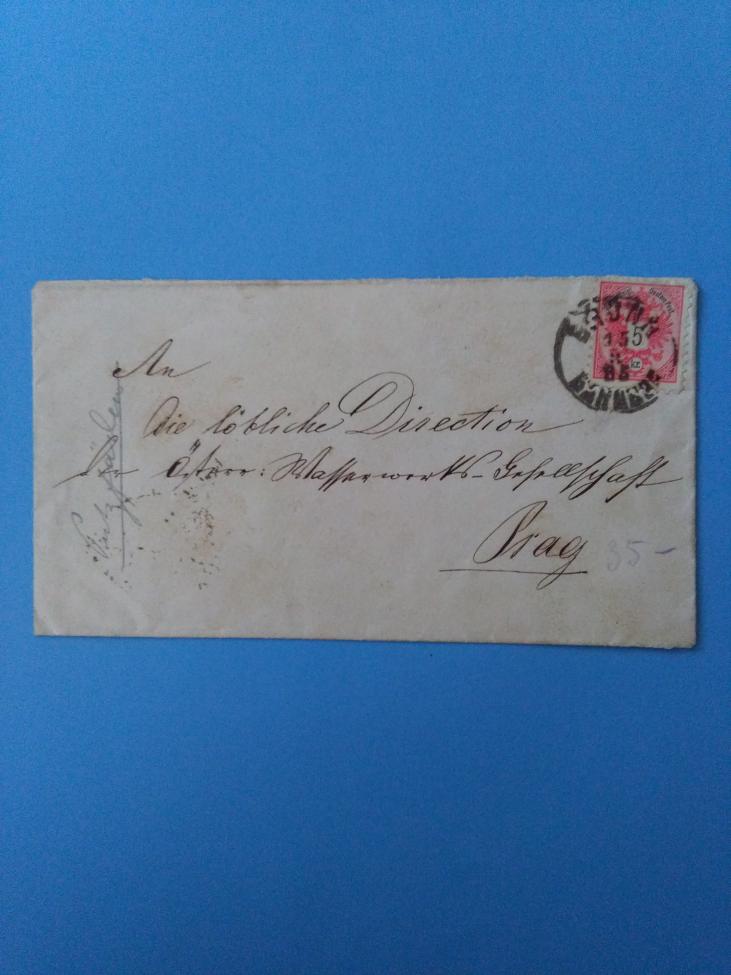 An
die löbliche Direction
der Österr: Wasserwerks-Gesellschaft
Prag
35-
5
kr
BRÜNN
15
85
BAHNHOF